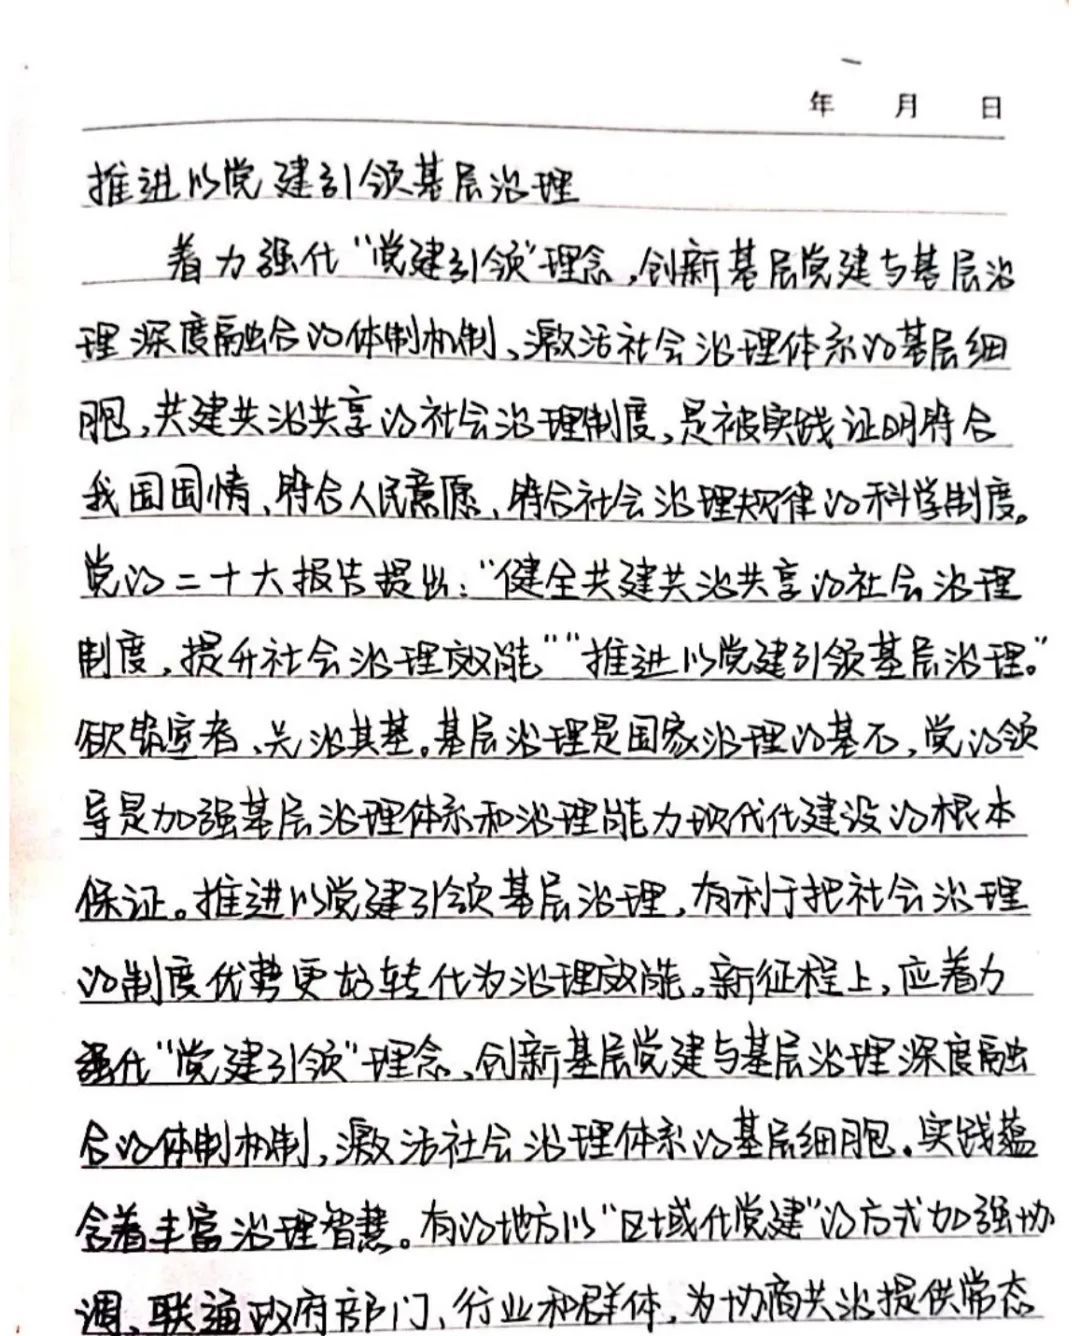 年 月 日
推进以党建引领基层治理
着力强化“党建引领”理念,创新基层党建与基层治
理深度融合的体制机制、激活社会治理体系的基层细
胞,共建共治共享的社会治理制度,是被实践证明符合
我国国情、符合人民意愿、符合社会治理规律的科学制度。
党的二十大报告提出:“健全共建共治共享的社会治理
制度,提升社会治理效能”“推进以党建引领基层治理。”
欲筑室者、先治其基。基层治理是国家治理的基石,党的领
导是加强基层治理体系和治理能力现代化建设的根本
保证。推进以党建引领基层治理,有利于把社会治理
的制度优势更好转化为治理效能。新征程上,应着力
强化“党建引领”理念、创新基层党建与基层治理深度融
合的体制机制,激活社会治理体系的基层细胞。实践蕴
含着丰富治理智慧。有的地方以“区域化党建”的方式加强协
调、联通政府部门、行业和群体,为协商共治提供常态